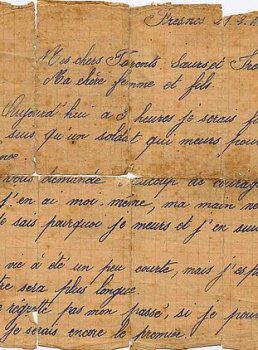 Fresnes 21.2.
Mes chers Parents, Sœurs et Frè
Ma chère femme et fils.
Aujourd'hui à 3 heures je serais f
suis qu'un soldat qui meurs pour
nce
vous demande beaucoup de courag
j'en ai moi-même, ma main ne
je sais pourquoi je meurs et j'en suis
vie à été un peu courte, mais j'es
tre sera plus longue.
regrette pas mon passé, si je pou
je serais encore le premier.